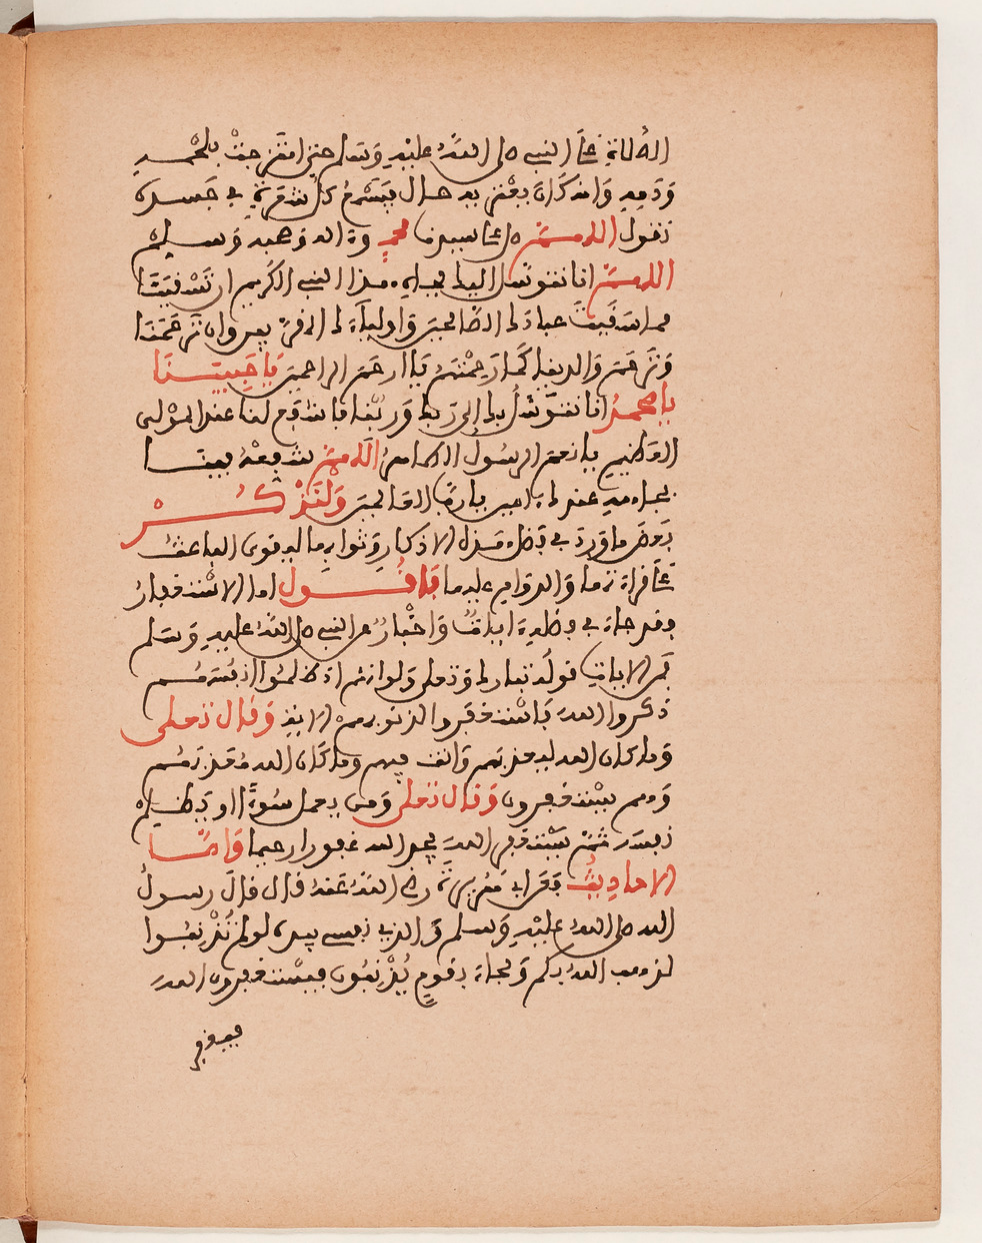 الصلاة على النبي صلى الله عليه وسلم حتى امتزجت بلحمه
ودمه وان كان بعض به حال يسمع كل شعرة في جسده
تقول اللهم صل على سيدنا محمد وءاله وصحبه وسلم
اللهم انا نتوسل اليك بجاه هذا النبي الكريم ان تسقينا
مما سقيت عبادك الصالحين واولياءك المقربين وان ترحمنا
وترحم والدينا كما رحمتهم يا ارحم الراحمين يا حبيبنا
يا محمد انا نتوسل بك الى ربك وربنا فاشفع لنا عند المولى
العظيم يا نعم الرسول الطاهر اللهم شفعه فينا
بجاهه عندك ءامين يا رب العالمين ولنذكر
بعض ما ورد في فضل هذه الاذكار وثوابها ليقوى الباعث
على قراءتها والدوام عليها فاقول اما الاستغفار
وقد جاء في فضله ءايات واخبار عن النبي صلى الله عليه وسلم
فمن الايات قوله تبارك وتعلى ولو انهم اذ ظلموا انفسهم
ذكروا الله فاستغفروا لذنوبهم الاية وقال تعلى
وما كان الله ليعذبهم وانت فيهم وما كان الله معذبهم
وهم يستغفرون وقال تعلى ومن يعمل سوءا او يظلم
نفسه ثم يستغفر الله يجد الله غفورا رحيما واما
الاحاديث فعن ابي هريرة رضي الله عنه قال قال رسول
الله صلى الله عليه وسلم والذي نفسي بيده لو لم تذنبوا
لذهب الله بكم ولجاء بقوم يذنبون فيستغفرون الله
فيغفر